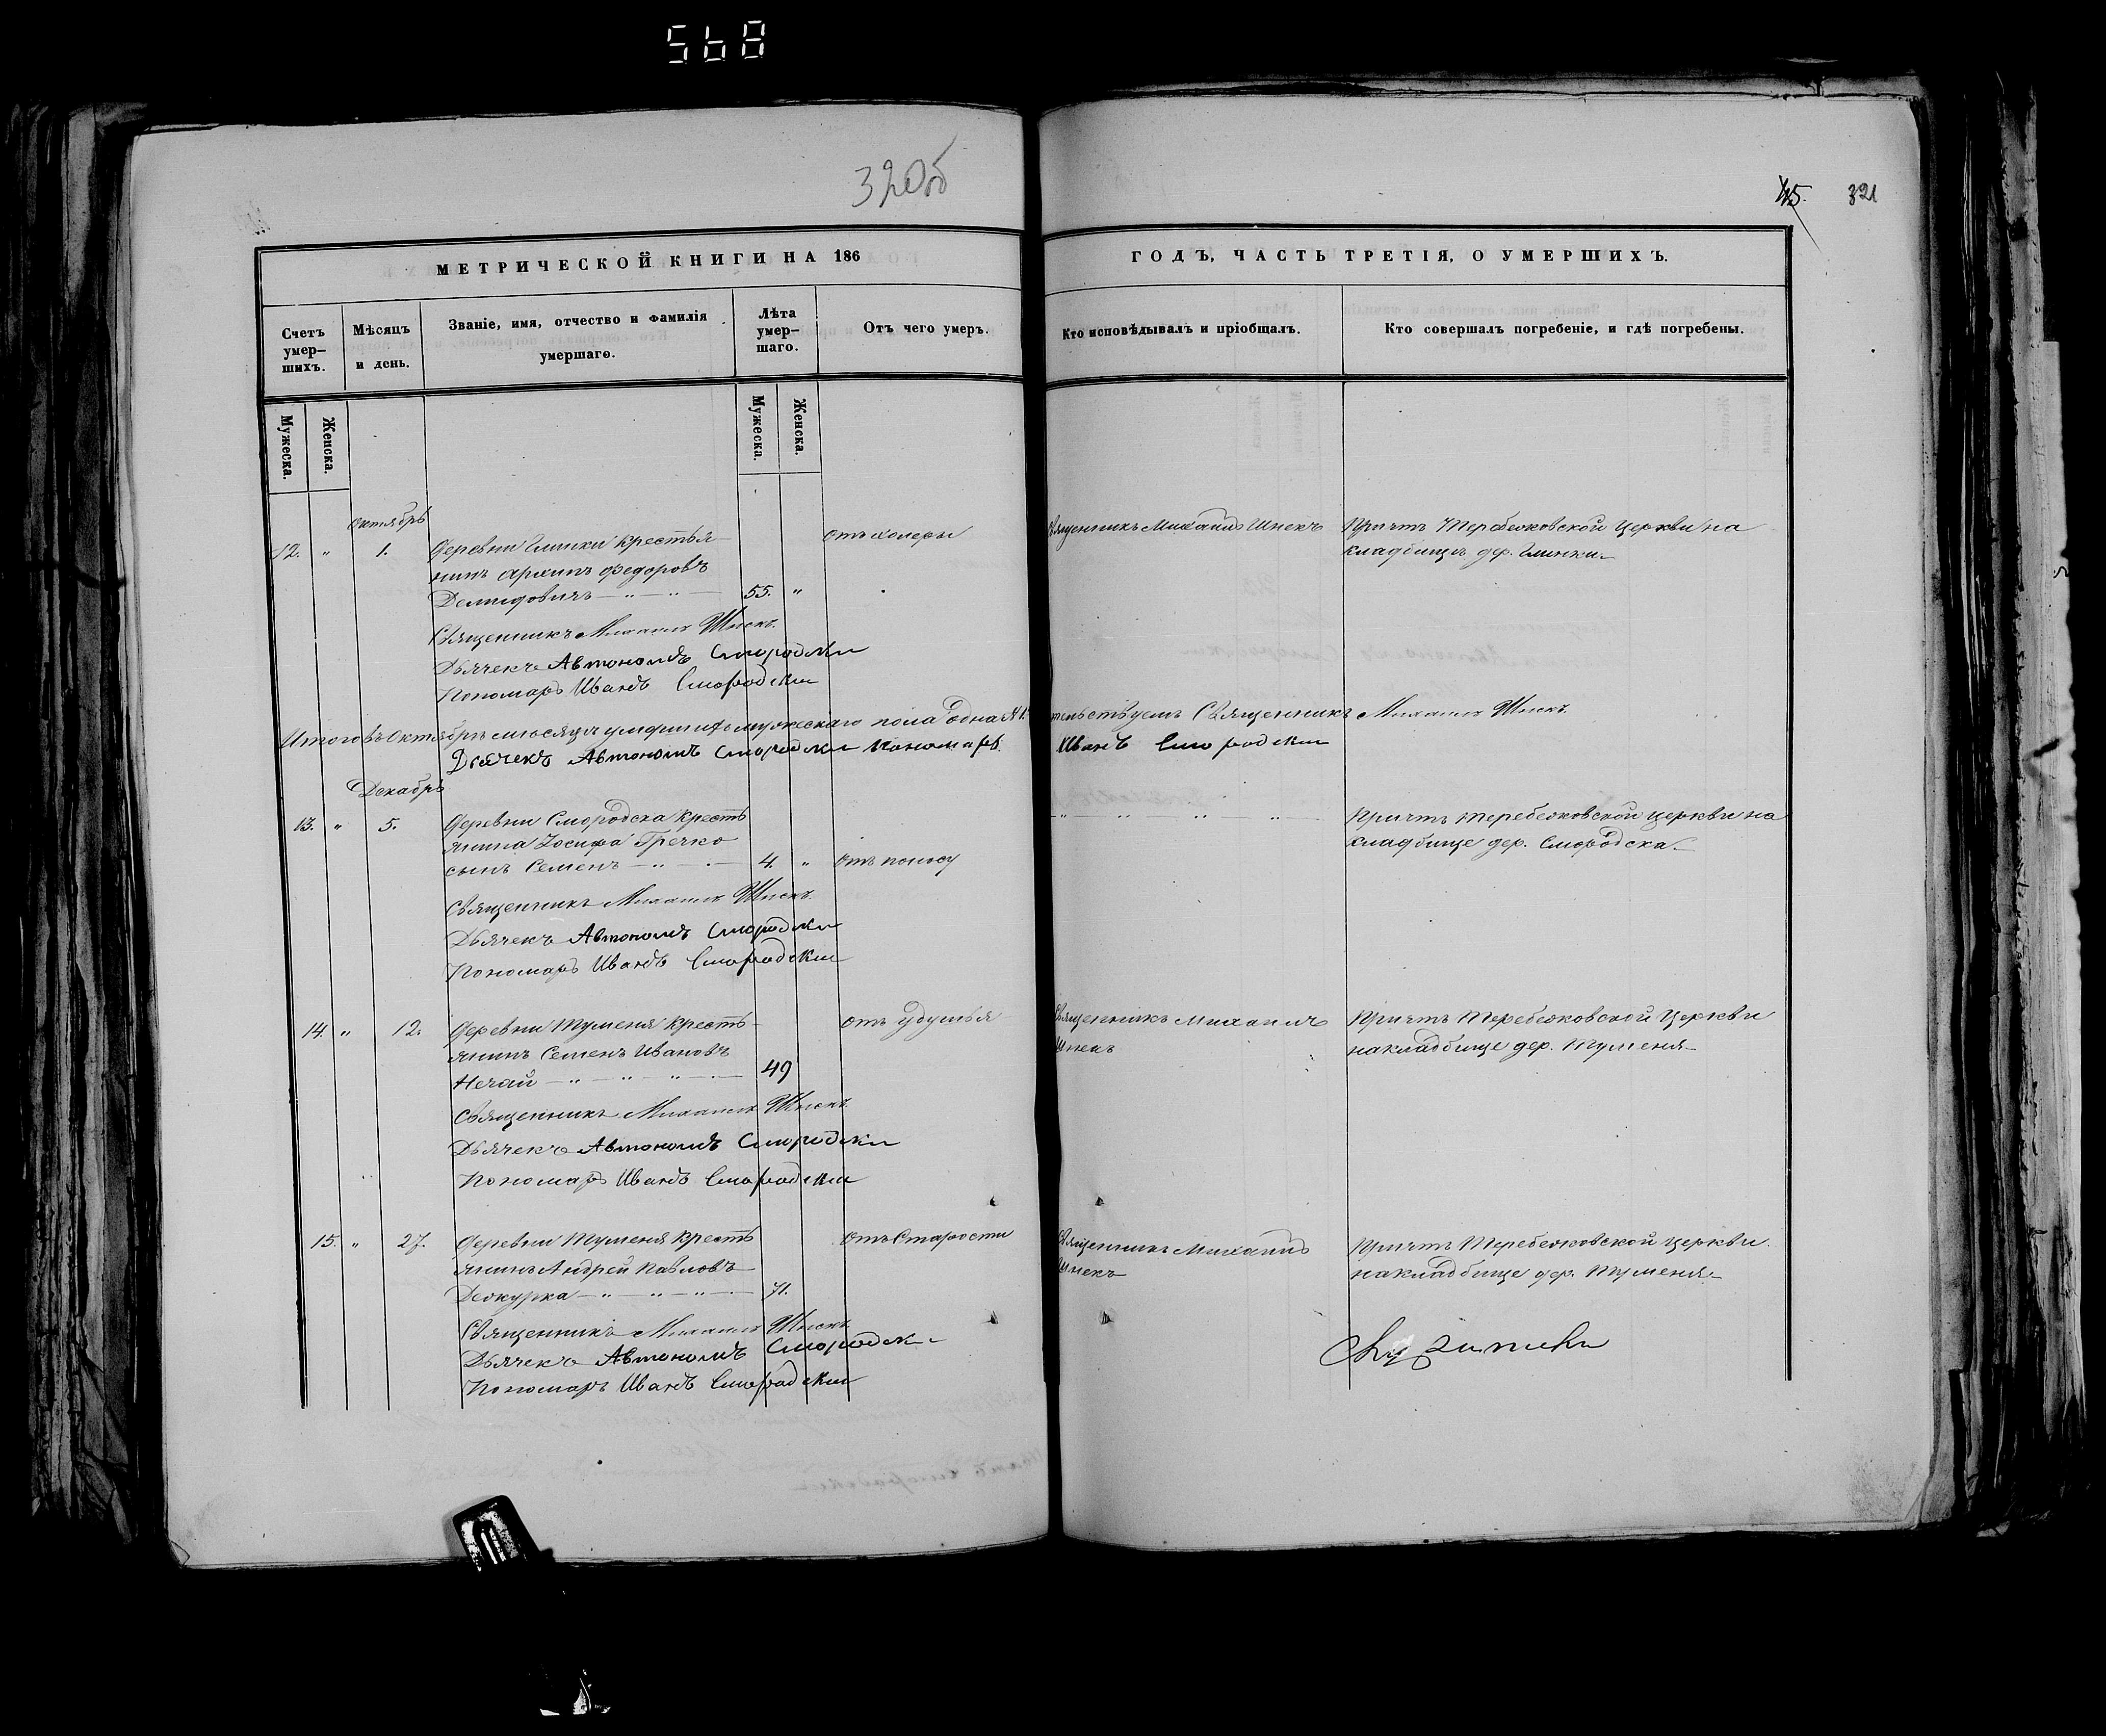 568
320об
45. 321
МЕТРИЧЕСКОЙ КНИГИ НА 186
ГОДЪ, ЧАСТЬ ТРЕТІЯ, О УМЕРШИХЪ.
Счетъ умер-шихъ.
Мѣсяцъ и день.
Званіе, имя, отчество и фамилія
умершаго.
Лѣта умер-шаго.
Отъ чего умеръ.
Кто исповѣдывалъ и пріобщалъ.
Кто совершалъ погребеніе, и гдѣ погребены.
Мужеска.
Женска.
Мужеска.
Женска.
Октябрь
12. " 1. Деревни Глинки крестья
нинъ Архипъ Федоровъ
Демидовичъ 55. "
отъ холеры
Священникъ Михаилъ Шнекъ
Причтъ Теребежовской церкви на
кладбищѣ дер. Глинки
Священникъ Михаилъ Шнекъ.
Дьячекъ Автономъ Смородски
Пономарь Иванъ Смородски
Итого въ Октябрѣ мѣсяцѣ умерших мужескаго пола одна № 1.
Священникъ Михаилъ Шнекъ.
Дьячекъ Автономъ Смородски Пономарь
Иванъ Смородски
Декабрь
13. " 5. Деревни Смородска кресть
янина Іосифа Гречко
сынъ Семенъ 4 " отъ поносу
Причтъ Теребежовской церкви на
кладбище дер. Смородска
Священникъ Михаилъ Шнекъ.
Дьячекъ Автономъ Смородски
Пономарь Иванъ Смородски
14. " 12. Деревни Туменя кресть-
янинъ Семенъ Ивановъ
Нечай 49
отъ удушья
Священникъ Михаилъ
Шнекъ
Причтъ Теребежовской Церкви
на кладбище дер. Туменя
Священникъ Михаилъ Шнекъ
Дьячекъ Автономъ Смородски
Пономарь Иванъ Смородски
15. " 27. Деревни Туменя кресть
янинъ Андрей Павловъ
71.
отъ Старости
Священникъ Михаилъ
Шнекъ
Причтъ Теребежовской церкви
на кладбище дер. Туменя
Священникъ Михаилъ Шнекъ
Дьячекъ Автономъ Смородски
Пономарь Иванъ Смородски